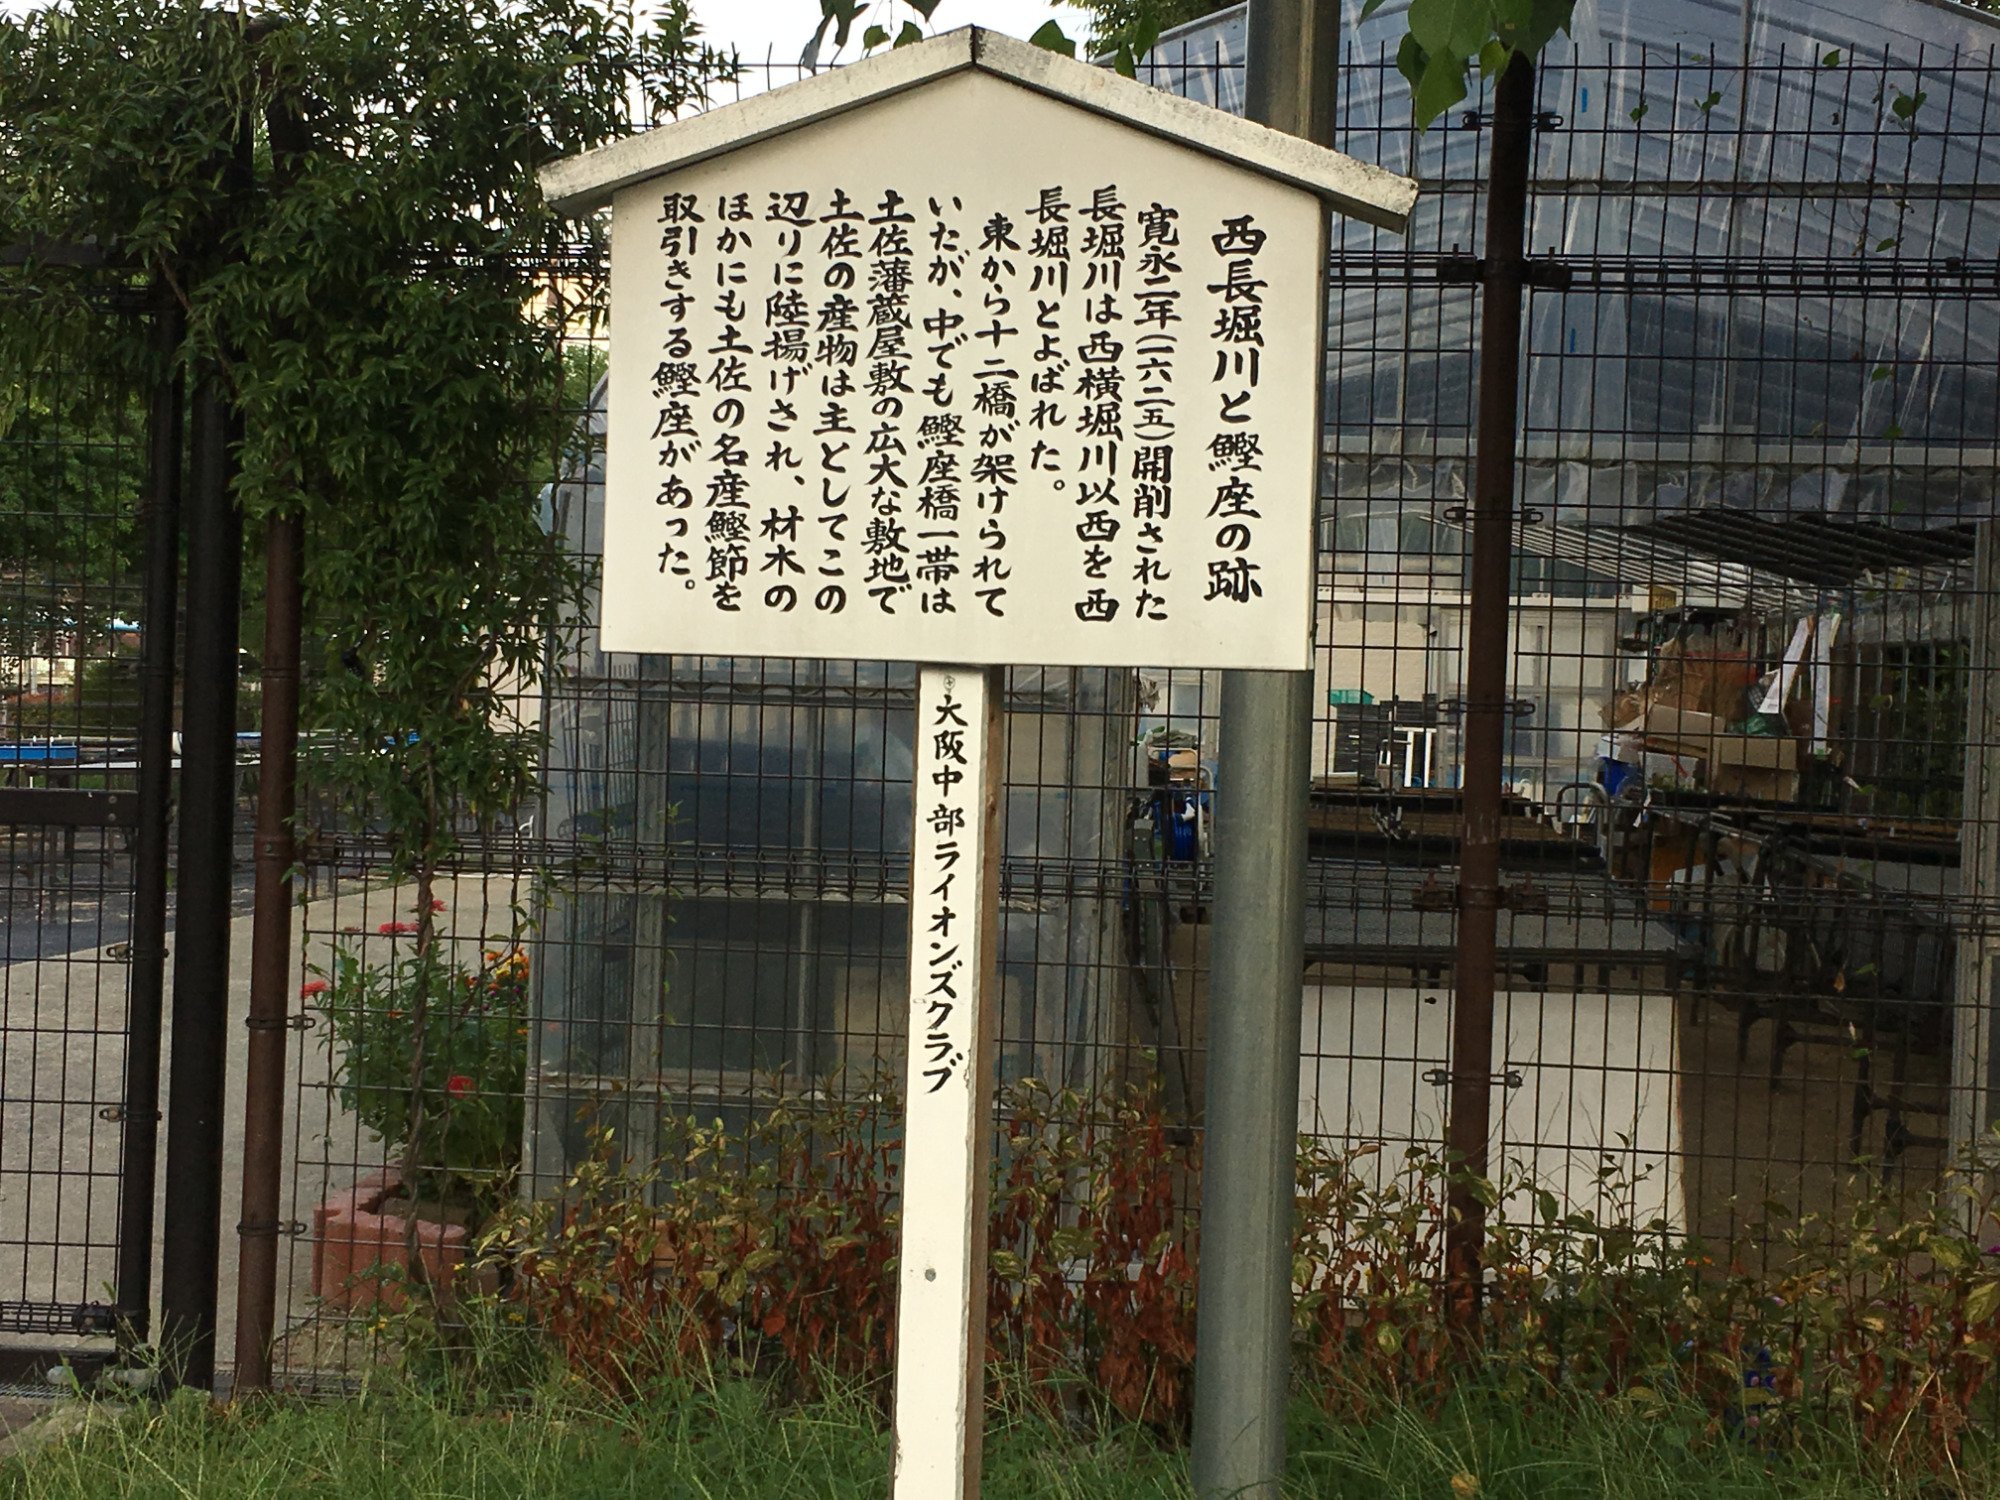 西長堀川と鰹座の跡
寛永二年(一六二五)開削された
長堀川は西横堀川以西を西
長堀川とよばれた。
東から十二橋が架けられて
いたが、中でも鰹座橋一帯は
土佐藩蔵屋敷の広大な敷地で
土佐の産物は主としてこの
辺りに陸揚げされ、材木の
ほかにも土佐の名産鰹節を
取引きする鰹座があった。
大阪中部ライオンズクラブ